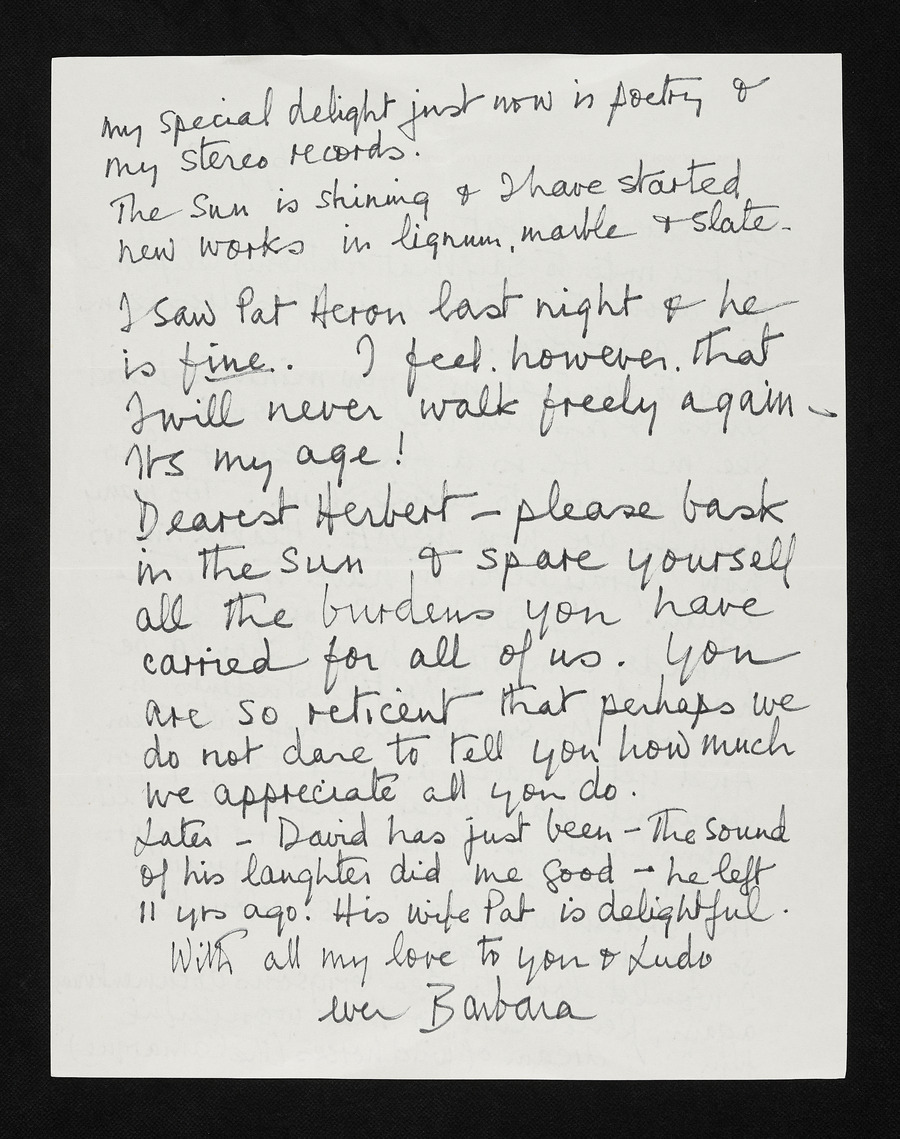 my special delight just now is poetry &
my stereo records.
The Sun is shining & I have started
new works in lignum, marble & slate.
I saw Pat Heron last night & he
is fine. I feel. however. that
I will never walk freely again -
Its my age!
Dearest Herbert - please bask
in the Sun & spare yourself
all the burdens you have
carried for all of us. You
are so reticent that perhaps we
do not dare to tell you how much
we appreciate all you do.
Later - David has just been - The sound
of his laughter did me good - he left
11 yrs ago. His wife Pat is delightful.
With all my love to you & Ludo
ever Barbara